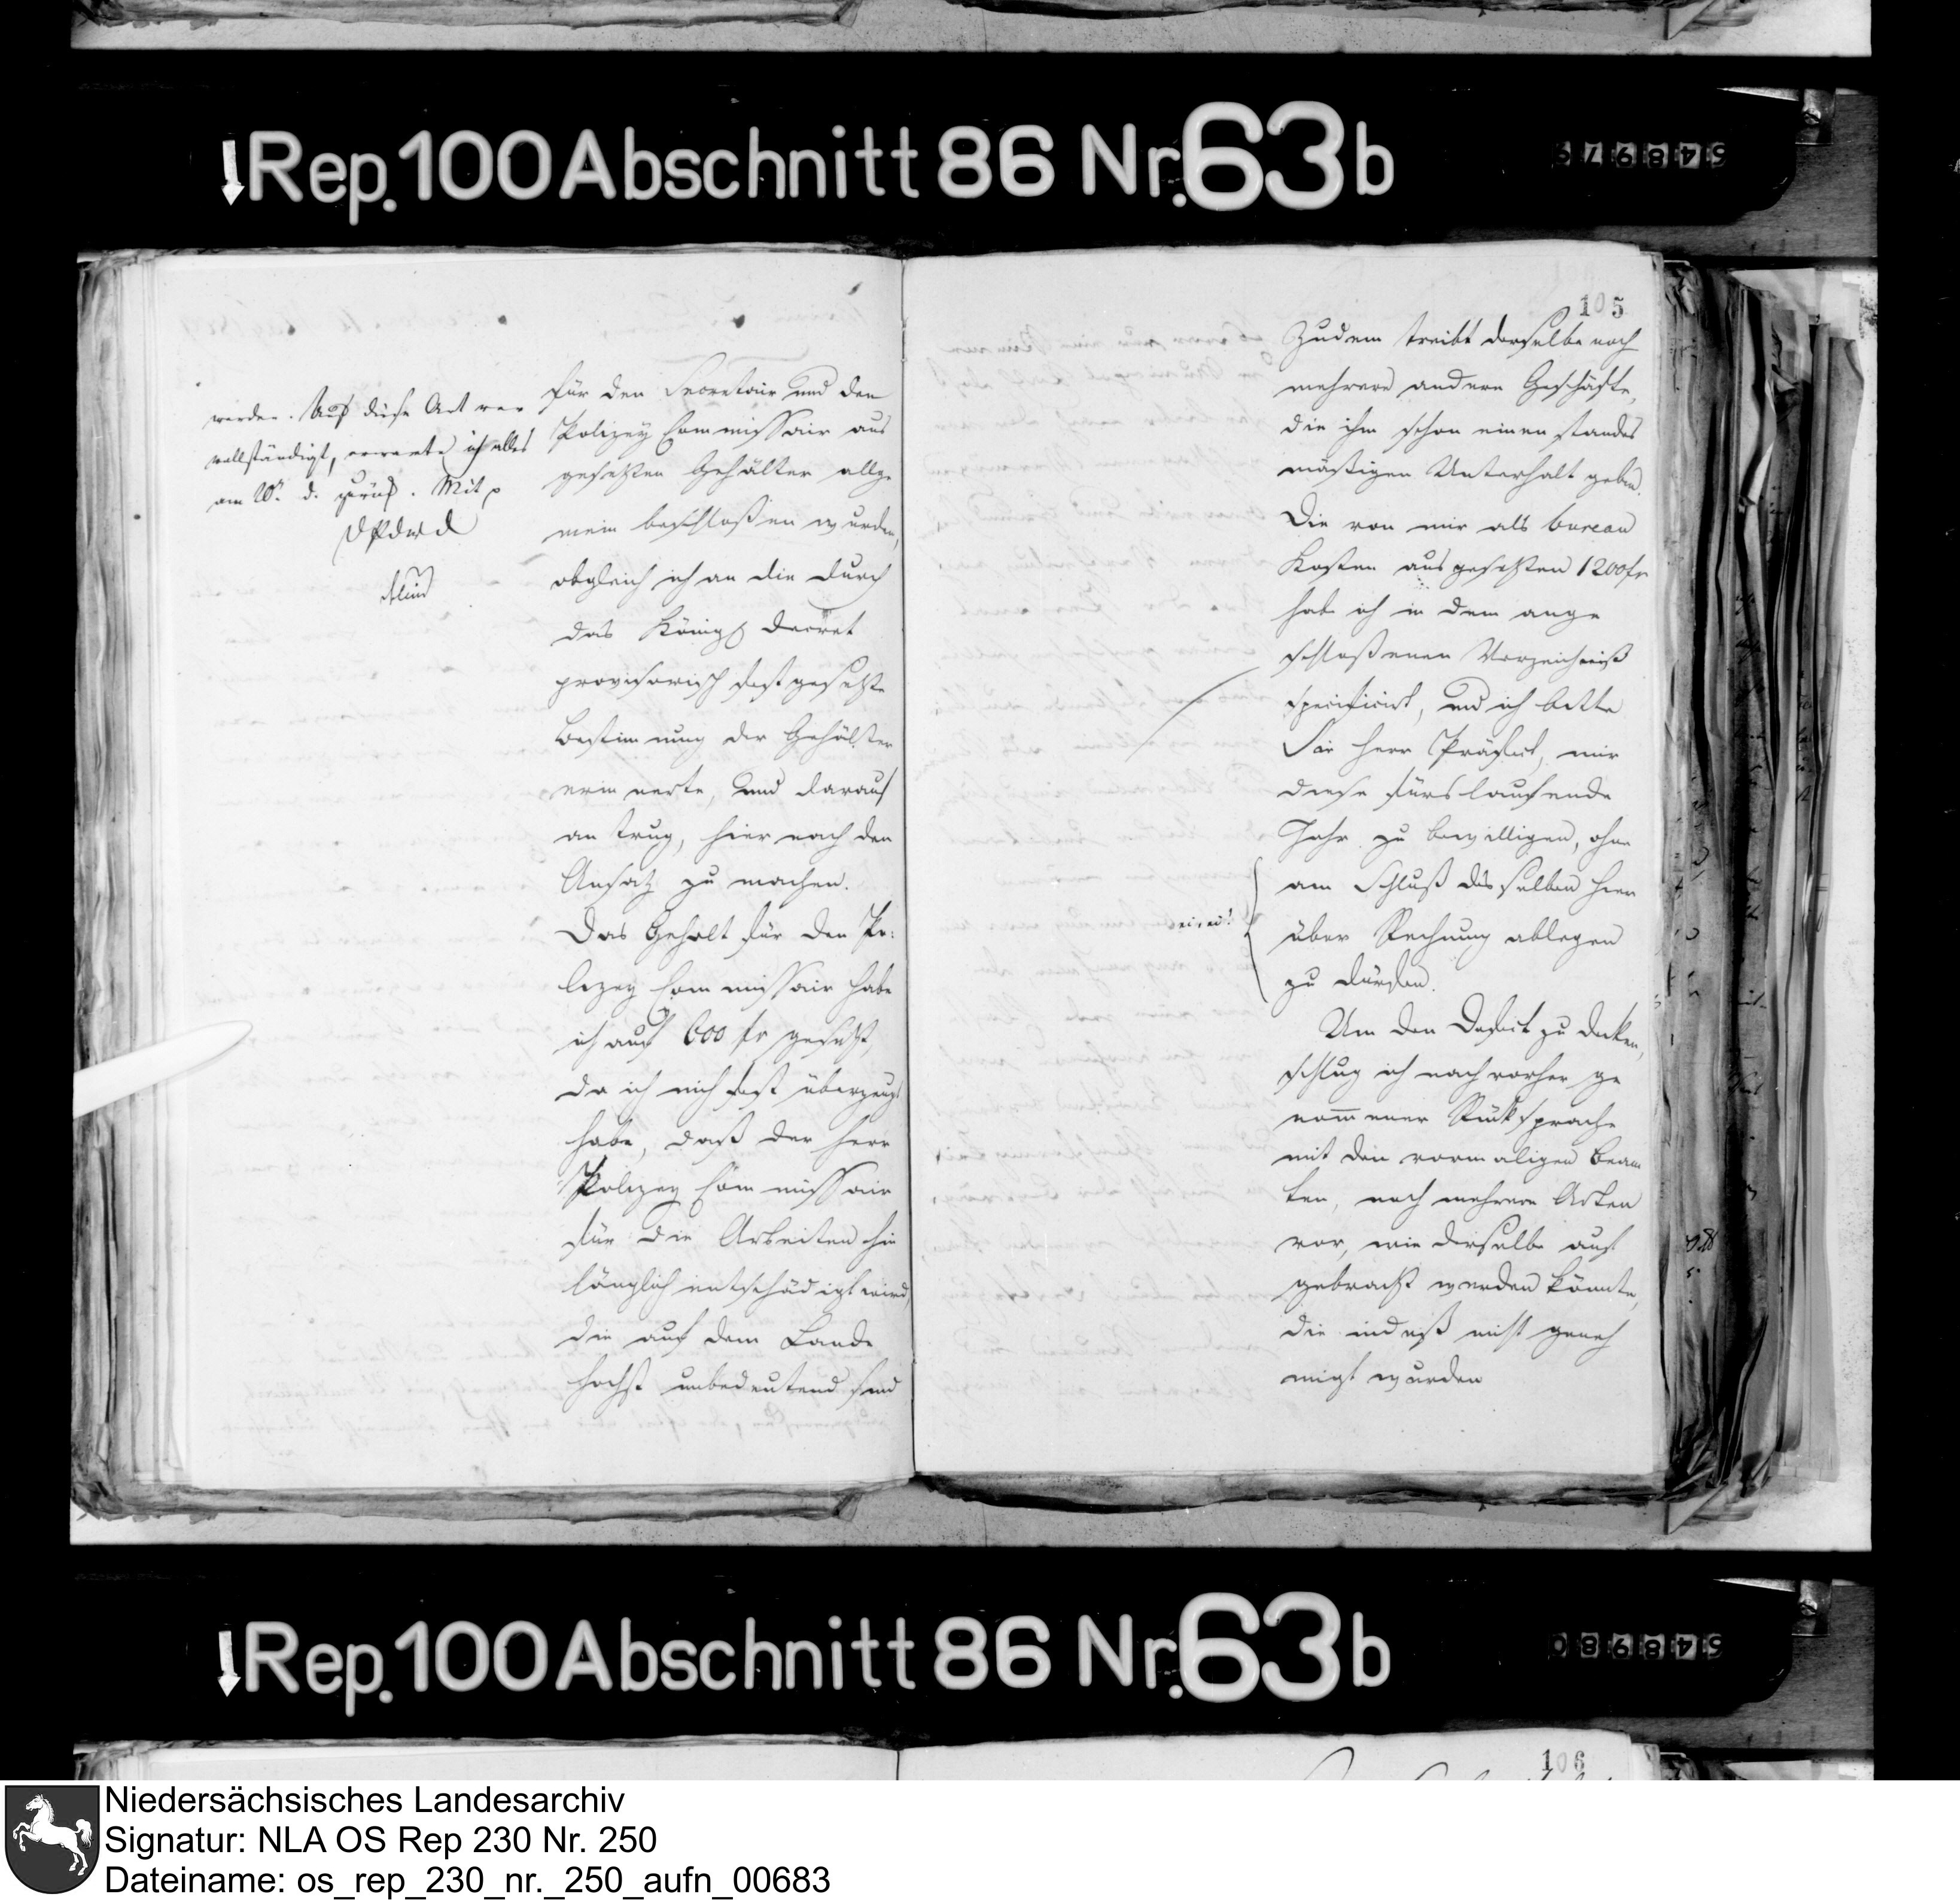 ↓Rep.100 Abschnitt 86 Nr.63b
548979
105
werden. Auf diese Art ver
vollständigt, erwarte ich alles
am 20n. d. zurück. Mit p
für den Secretair und den
Polizey Commissair aus
gesetzten Gehälter allge
mein beschloßen wurden,
obgleich ich an die durch
das Königl Decret
provisorisch festgesetzte
Bestimmung der Gehälter
erinnerte, und darauf
antrug, hier nach den
Ansatz zu machen.
Das Gehalt für den Po:
lizey Commissair habe
ich auf 600 fr gesetzt,
da ich mich fest überzeugt
habe, daß der Herr
Polizey Commissair
für die Arbeiten hin
länglich entschädigt wird,
die auf dem Lande
höchst unbedeutend sind
Zudem treibt derselbe noch
mehrere andere Geschäfte,
die ihm schon einen standes
mäßigen Unterhalt geben.
Die von mir als bureau
Kosten ausgesetzten 1200 fr
habe ich in dem ange
schloßenen Verzeichniß
specificirt, und ich bitte
Sie Herr Präfect, mir
diese fürs laufende
Jahr zu bewilligen, ohne
am Schluß desselben hier
über Rechnung ablegen
zu dürfen.
ei, ei!
Um den Defect zu decken,
schlug ich nach vorher ge
nommener Rücksprache
mit den vormaligen Beam
ten, noch mehrere Arten
vor, wie derselbe auf
gebracht werden könnte,
die indeß nicht geneh
migt wurden
↓Rep.100 Abschnitt 86 Nr.63b
548980
106
Niedersächsisches Landesarchiv
Signatur: NLA OS Rep 230 Nr. 250
Dateiname: os_rep_230_nr._250_aufn_00683